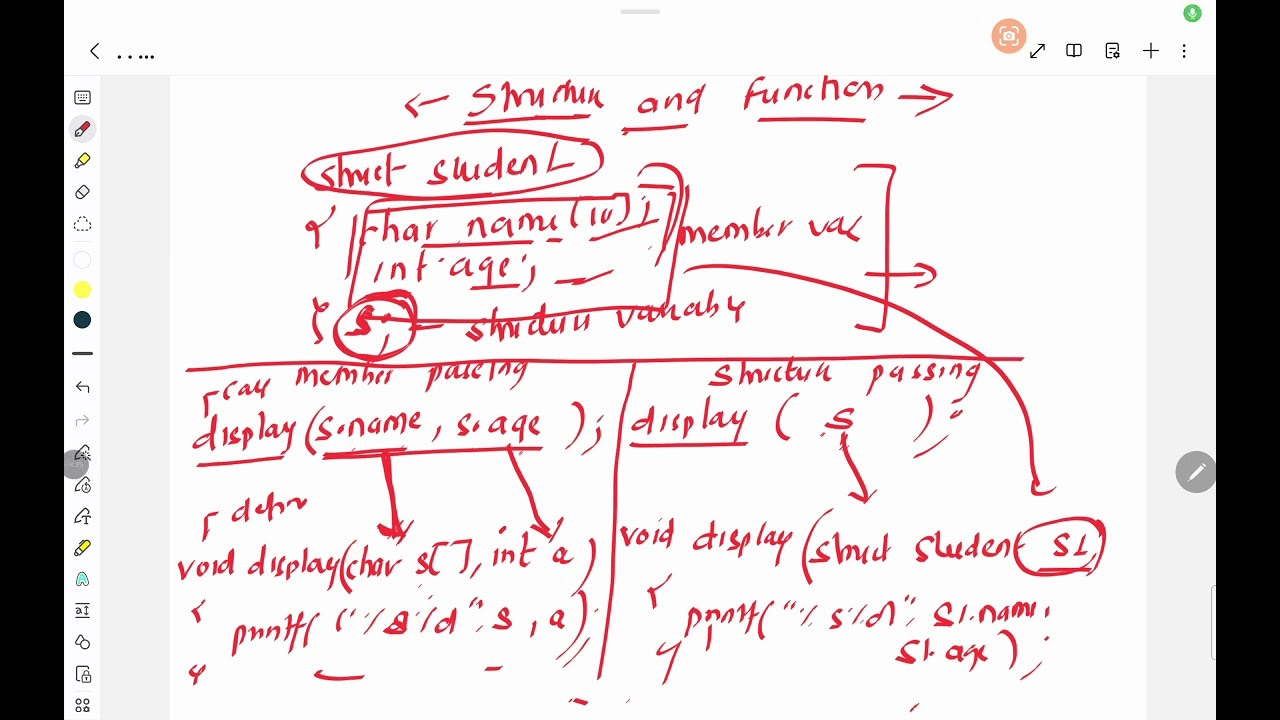 ← Structure and Function →
struct student
{ char name[10];
int age;
member var
} s; - structure variable
call member passing
display (s.name, s.age );
define
void display(char s[], int a)
{
printf("%s%d", s, a);
}
structure passing
display ( s ) ;
void display(struct student s1)
{
printf("%s%d", s1.name,
s1.age);
}